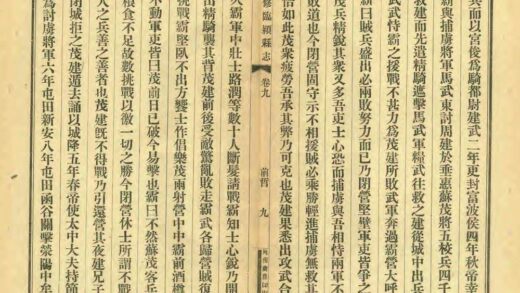 兵而以宮俊爲騎都尉建武二年更封富波侯四年秋帝幸
霸與捕虜將軍馬武東討周建於垂惠蘇茂將五校兵四千
救建而先遣精騎遮擊馬武軍糧武往救之建從城中出兵
武武恃霸之援戰不甚力爲茂建所敗武軍奔過霸營大呼
霸曰賊兵盛出必兩敗努力而已乃閉營堅壁軍吏皆爭之
茂兵精銳其衆又多吾吏士心恐而捕虜與吾相恃兩軍不
敗道也今閉營固守示不相援賊必乘勝輕進捕虜無救其
如此茂衆疲勞吾承其弊乃可克也茂建果悉出攻武合
修臨潁縣志 卷九 前哲 九
久霸軍中壯士路潤等數十人斷髮請戰霸知士心銳乃開
出精騎襲其背茂建前後受敵驚亂敗走霸武各歸營賊復
挑戰霸堅臥不出方饗士作倡樂茂雨射營中中霸前酒樽
不動軍吏皆曰茂前日已破今易擊也霸曰不然蘇茂客兵
糧食不足故數挑戰以徼一切之勝今閉營休士所謂不戰
人之兵善之善者也茂建旣不得戰乃引還營其夜建兄子
閉城拒之茂建遁去誦以城降五年春帝使太中大夫持節
爲討虜將軍六年屯田新安八年屯田函谷關擊滎陽中牟